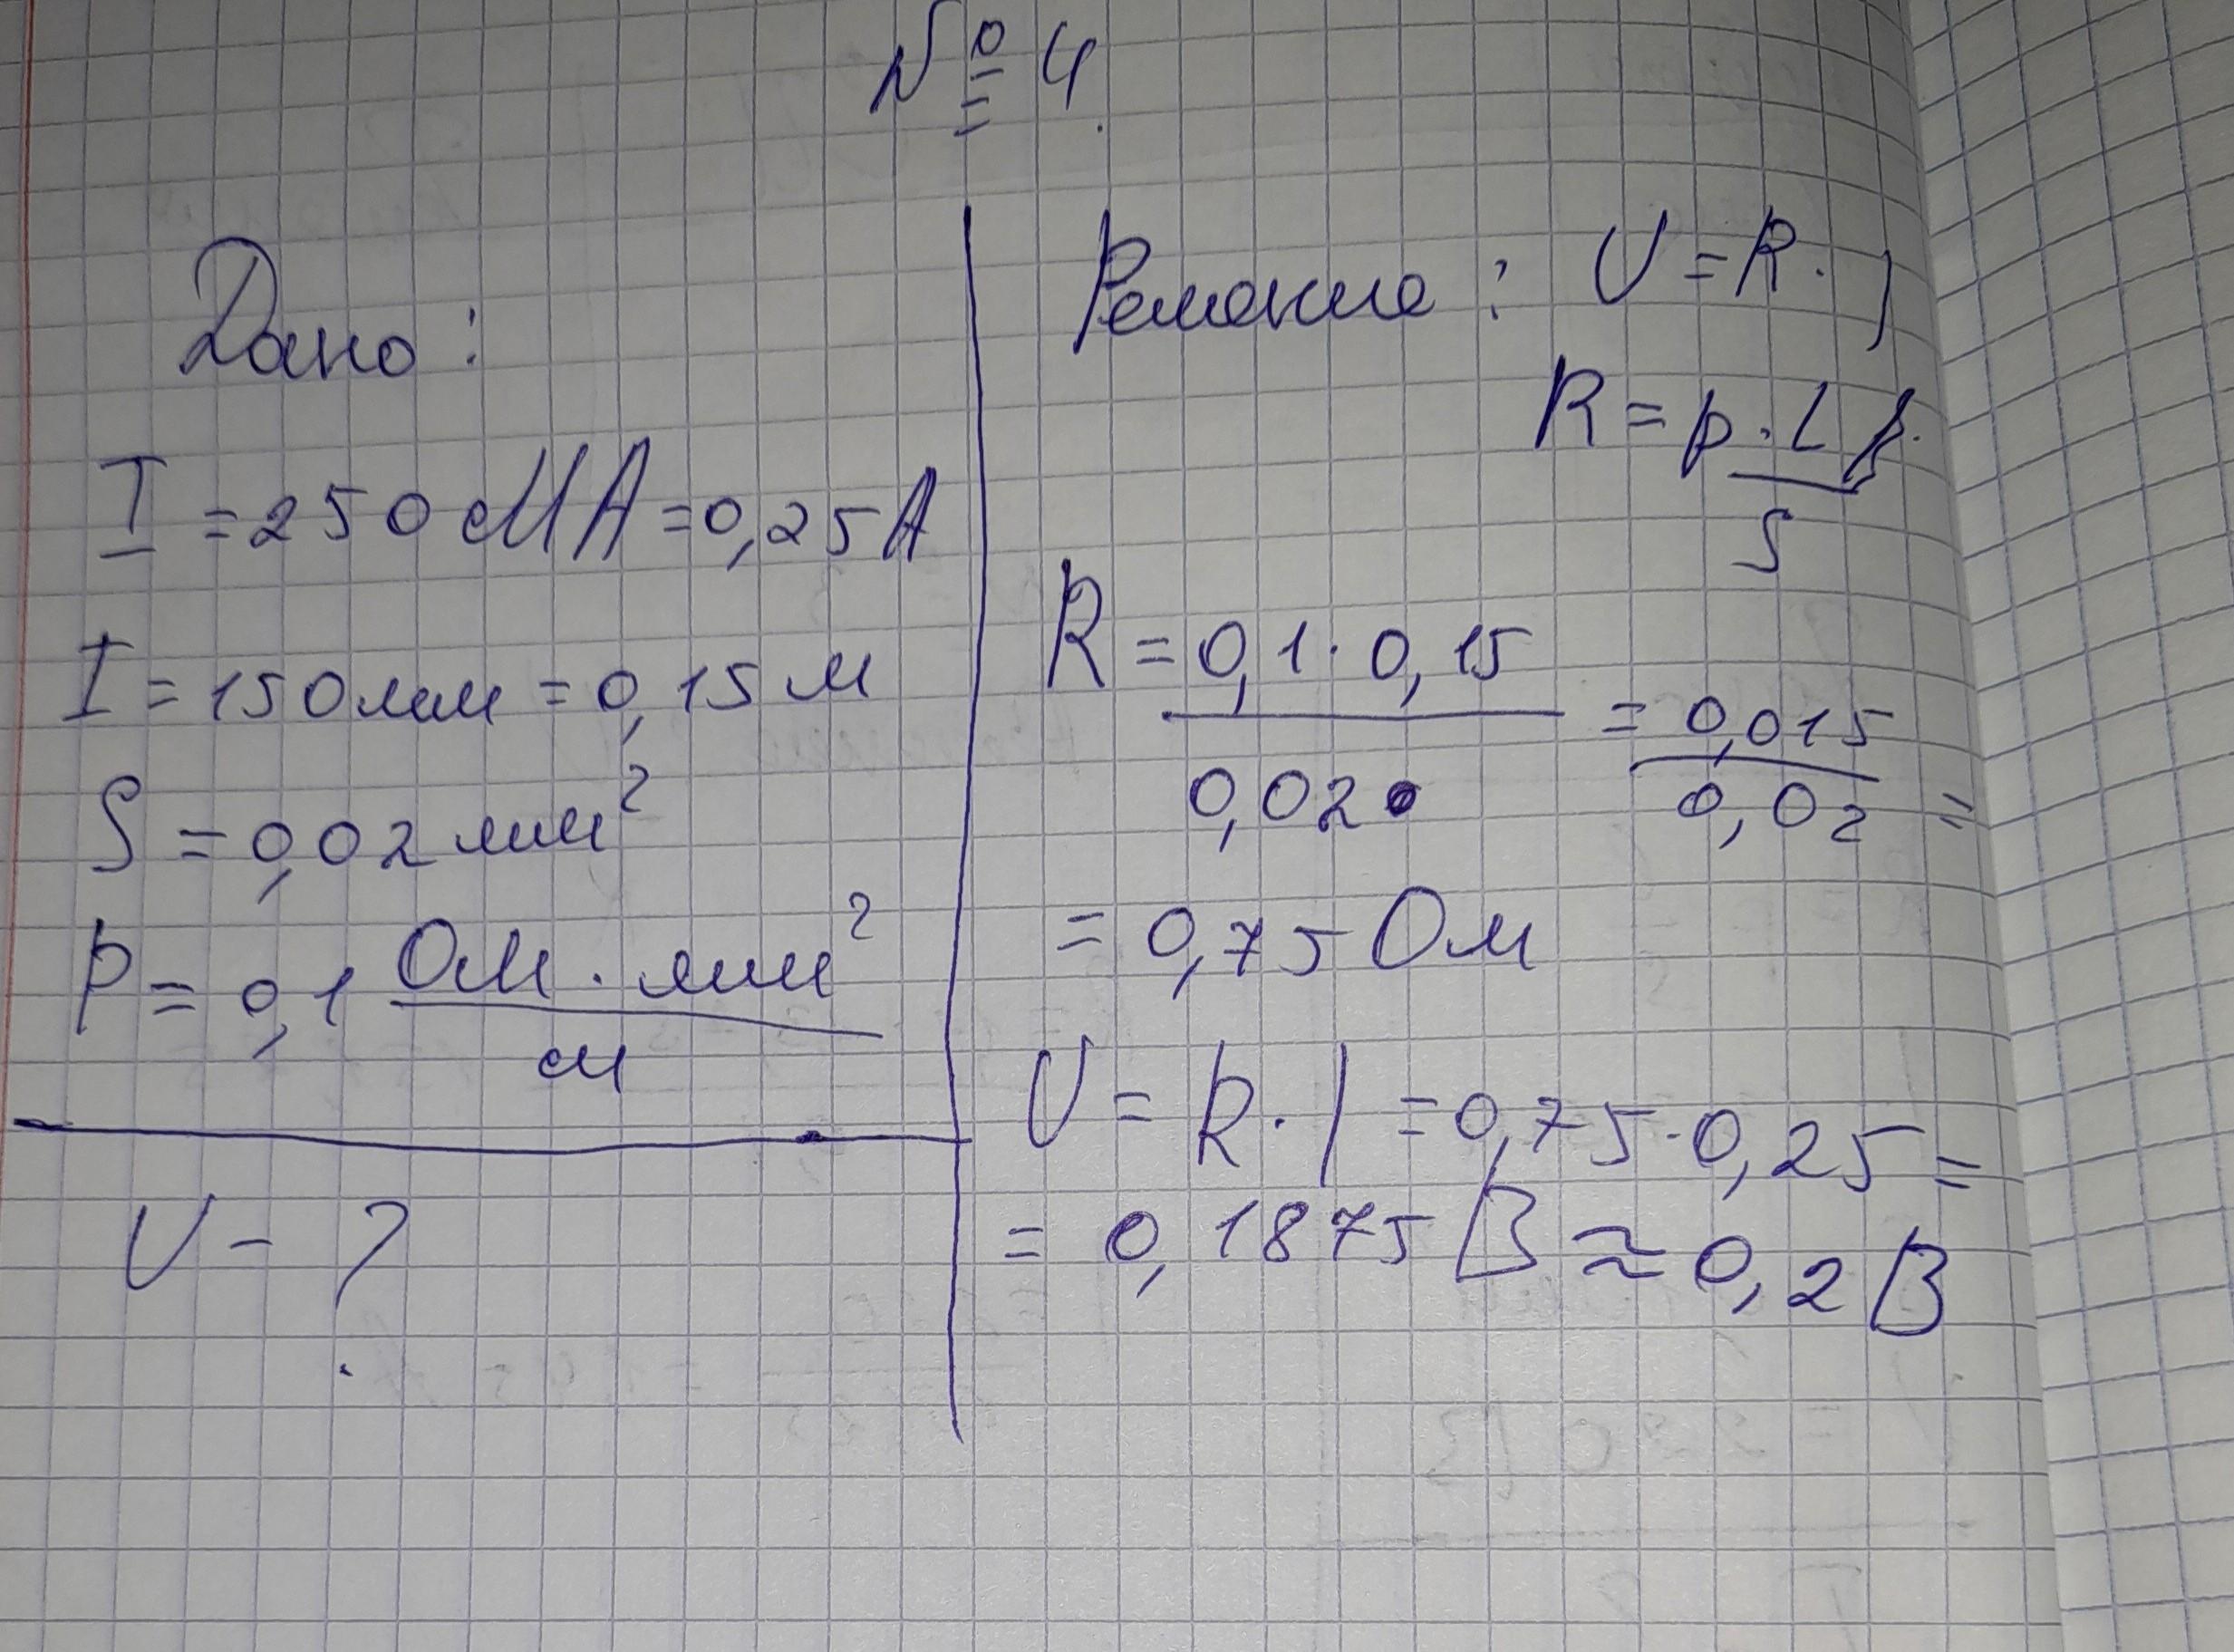 № 4.
Дано:
I = 250 мА = 0,25 А
I = 150 мм = 0,15 м
S = 0,02 мм²
р = 0,1 Ом · мм²
м
U - ?
Решение: U = R · I
R = р · L
S
R = 0,1 · 0,15
0,02
= 0,015
0,02 =
= 0,75 Ом
U = R · I = 0,75 · 0,25 =
= 0,1875 В ≈ 0,2 В